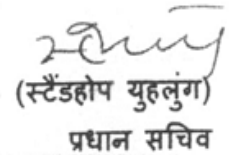 (स्टैंडहोप युहलुंग)
प्रधान सचिव